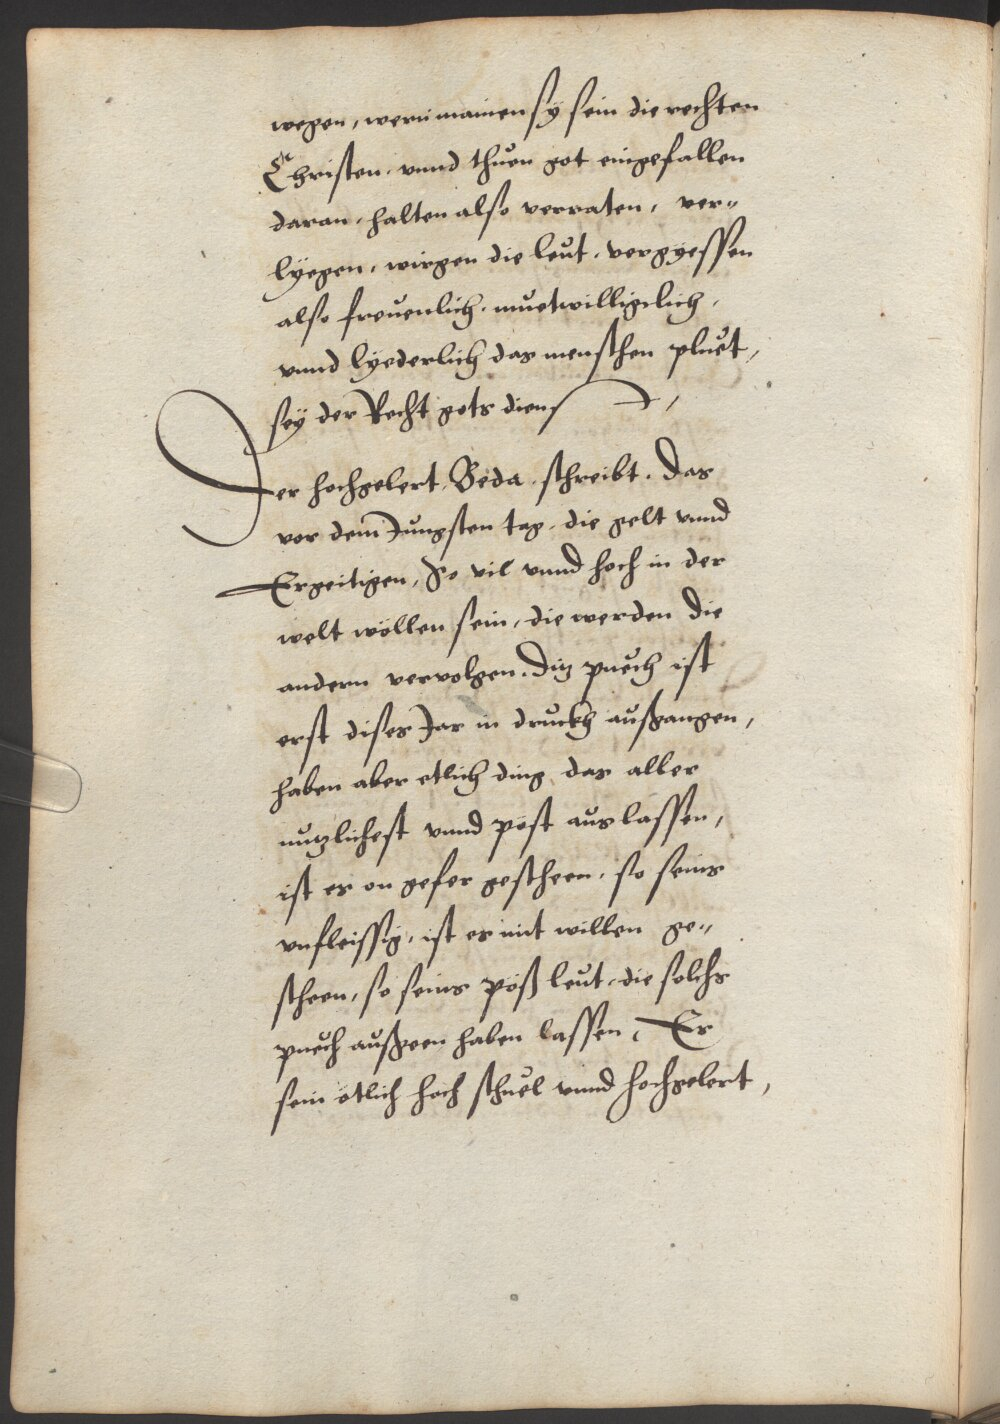 wegen, wern mainen sy sein die rechten
Christen, vnnd thuen got ein gefallen
daran, halten also verraten, ver-
lyegen, wirgen die leut, vergyessen
also freuenlich, muetwilligclich,
vnnd lyederlich das menschen pluet,
sey der Recht gots dienst,
Der hochgelert, Beda, schreibt. Das
vor dem Jungsten tag, die gelt vnnd
Ergeitigen, So vil vnnd hoch in der
welt wöllen sein, die werden die
andern vervolgen. Ditz puech ist
erst dises Jar in druckh außgangen,
haben aber etlich ding, das aller
nutzlichest vnnd pöst aus lassen,
ist es on gefer gescheen, so seins
vnfleissig, ist es mit willen ge-
scheen, so seins pöß leut, die solchs
puech außgeen haben lassen, Es
sein etlich hoch schuel vnnd hochgelert,